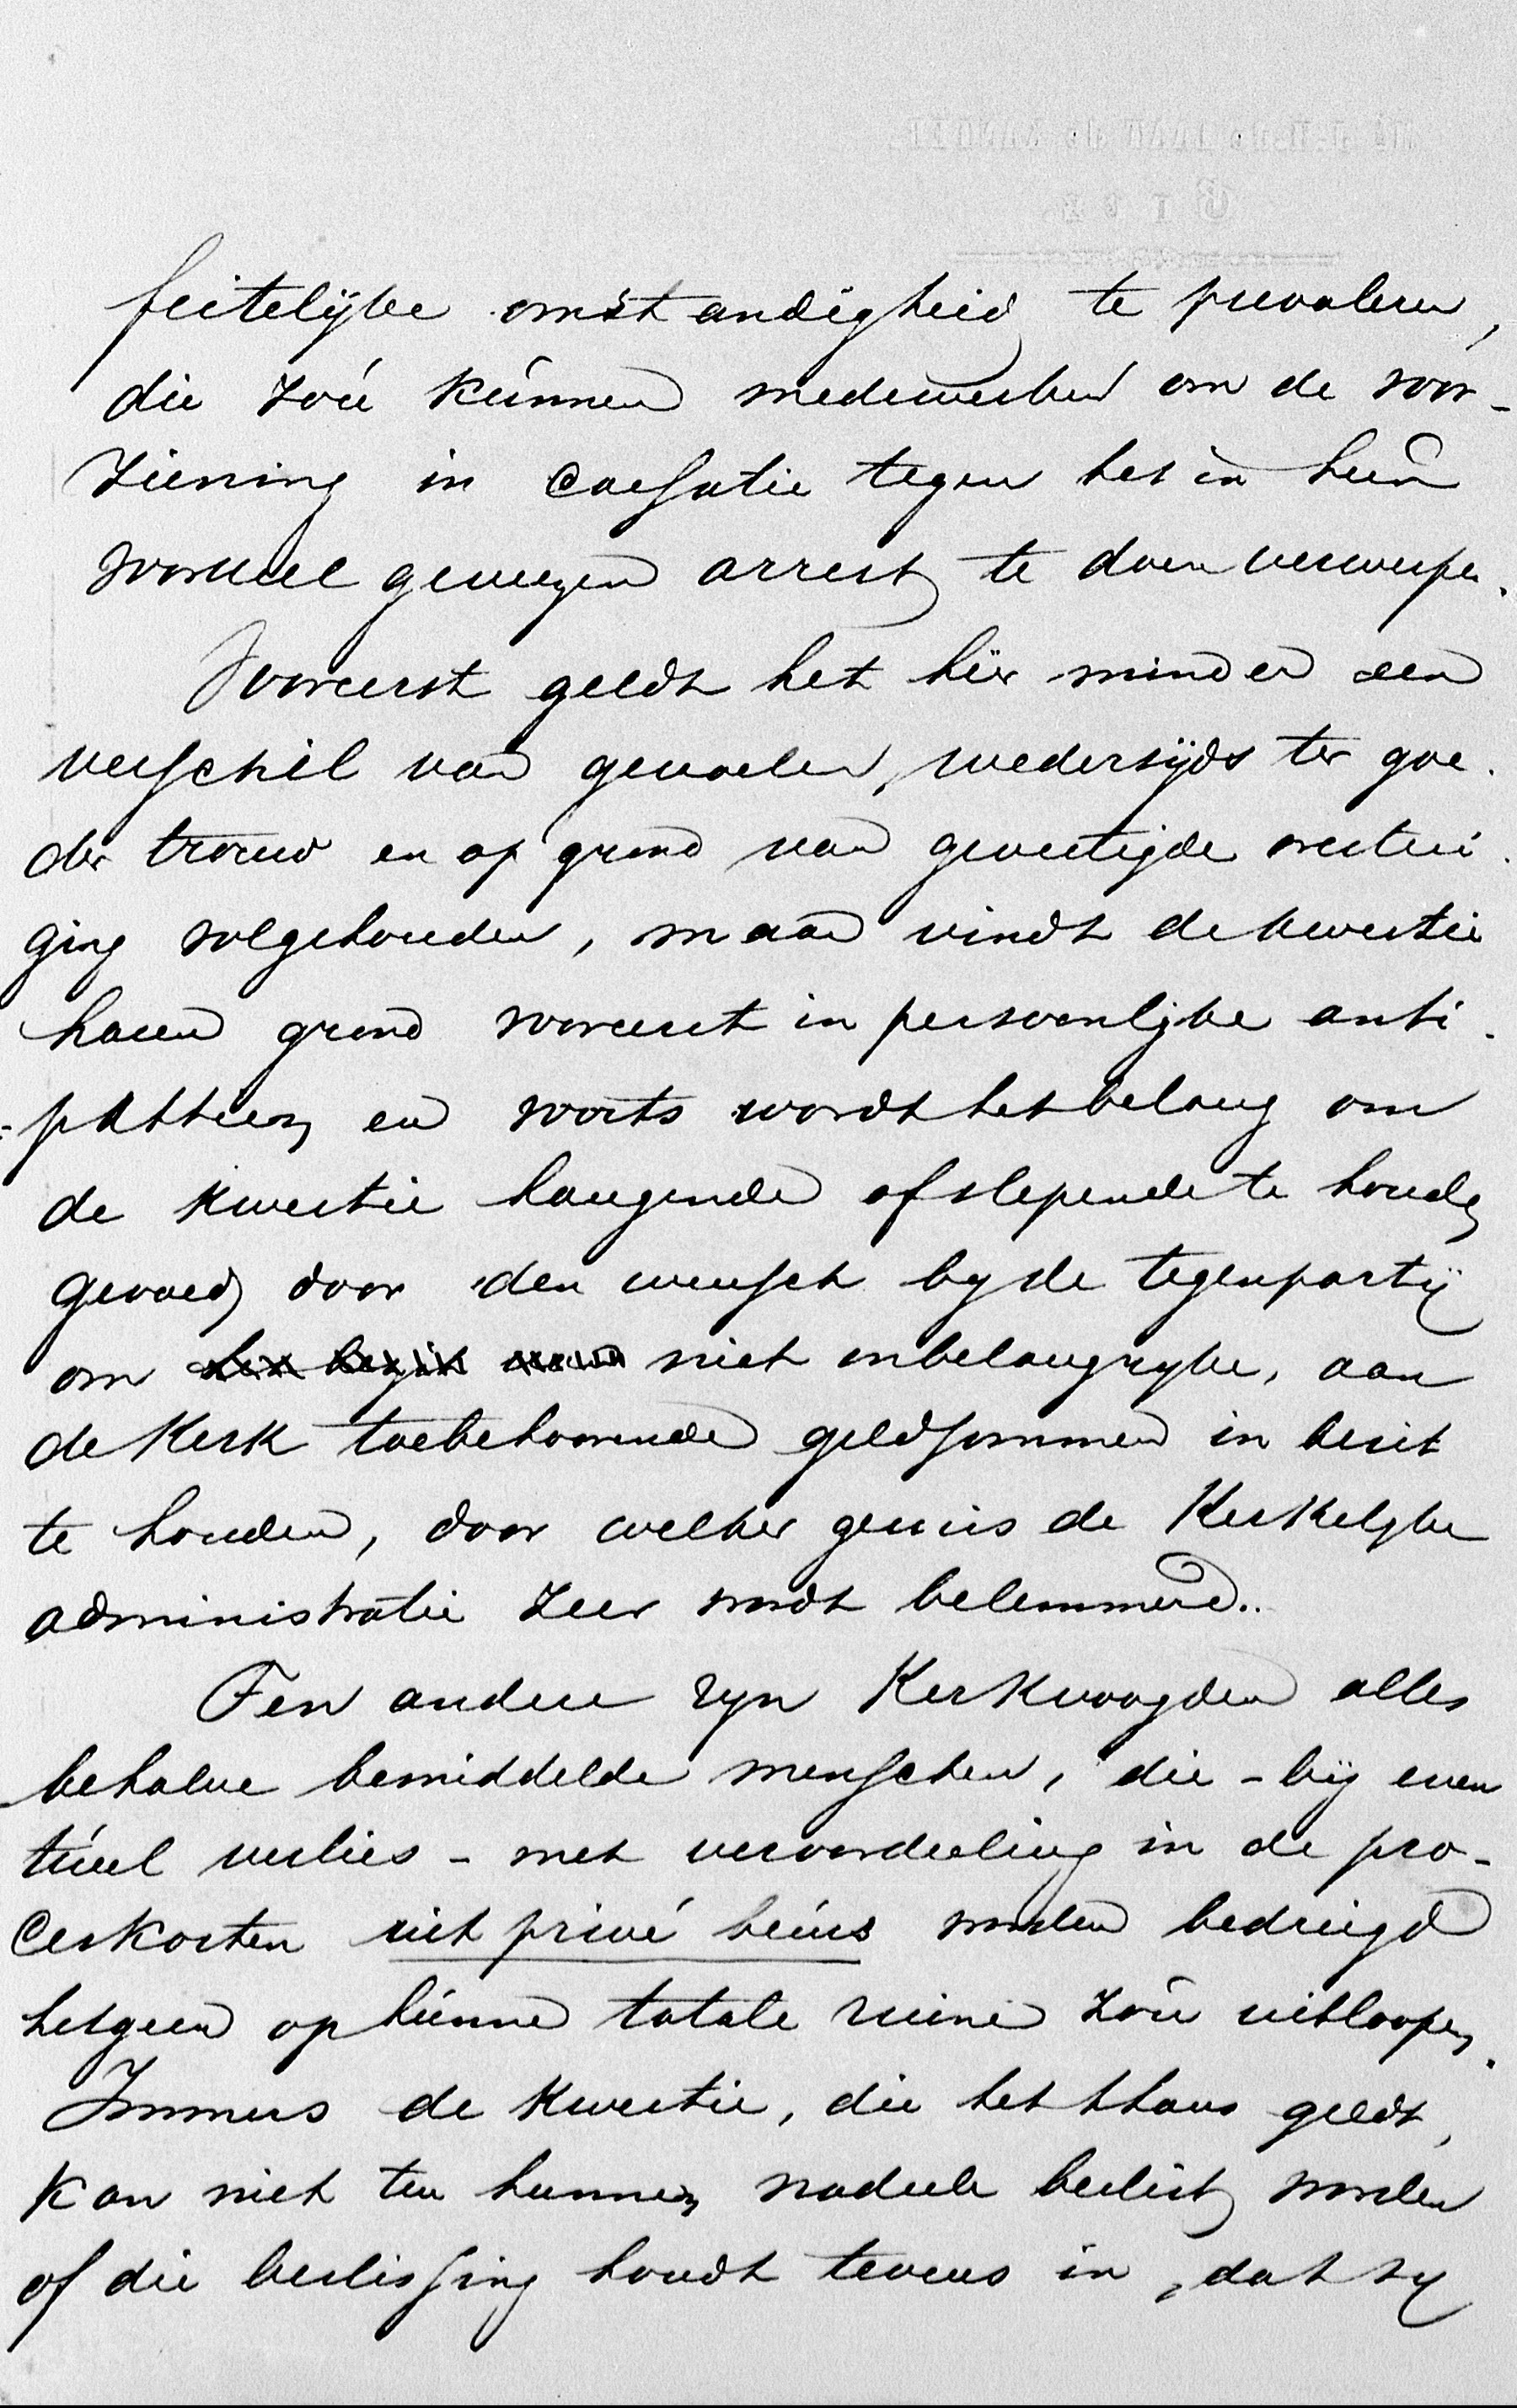 feitelijke omstandigheid te prevaleren,
die zoú kúnnen medewerken om de voor-
ziening in Cassatie tegen het in hún
voordeel gewezen arrest te doen verwerpen.
Vooreerst geldt het hier minder een
verschil van gevoelen, wederzijds ter goe-
der trouw en op grond van gevestigde overtui-
ging volgehouden, maar vindt de kwestie
haren grond vooreerst in persoonlijke anti-
pathieen, en voorts wordt het belang om
de kwestie hangende of slepende te houden
gevoed door den wensch by de tegenpartij
om niet onbelangryke, aan
de Kerk toebehoorende geldsommen in bezit
te houden, door welker gemis de Kerkelyke
administratie zeer wordt belemmerd.
Ten andere zyn Kerkvoogden alles
behalve bemiddelde menschen, die - bij even
túeel verlies - met veroordeeling in de pro-
ceskosten uit privé beúrs worden bedreigd
hetgeen op húnne totale ruine zoú uitloopen.
Immers de kwestie, die het thans geldt,
kan niet ten hunnen nadeele beslist worden
of die beslissing houdt tevens in, dat zy